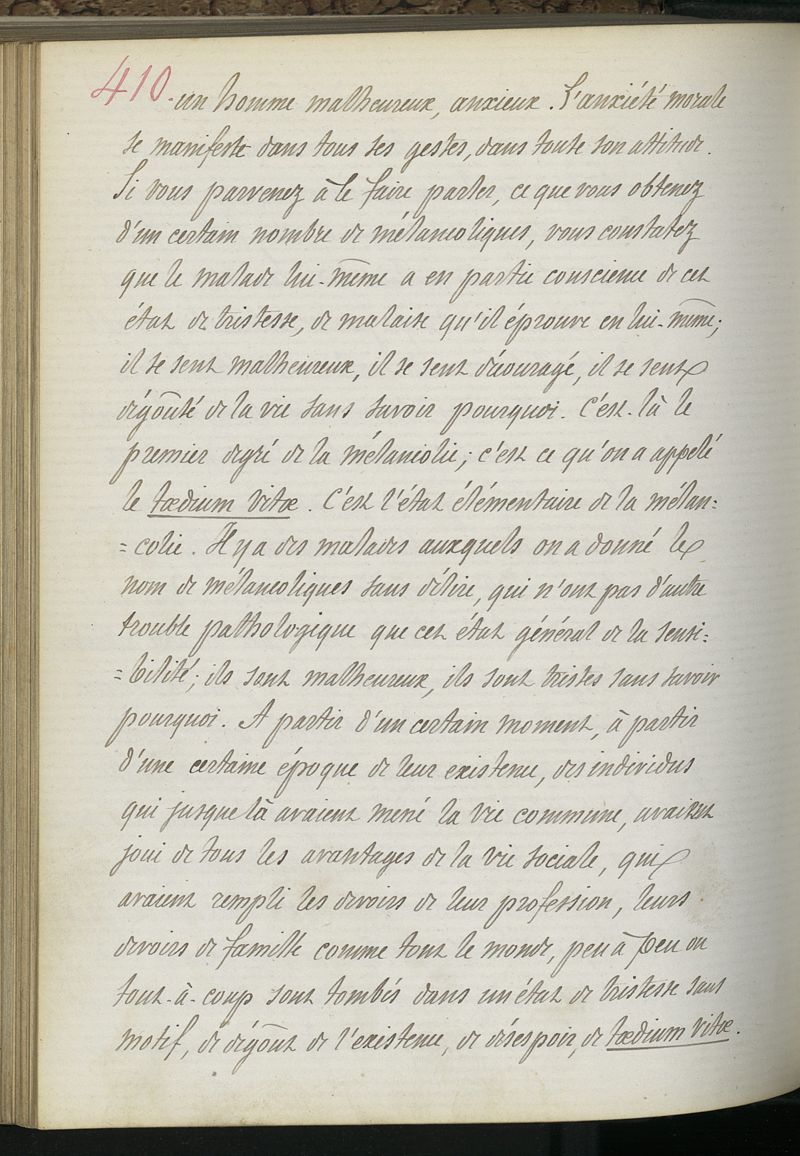 410. un homme malheureux, anxieux. L'anxiété morale
se manifeste dans tous ses gestes, dans toute son attitude.
Si vous parvenez à le faire parler, ce que vous obtenez
d'un certain nombre de mélancoliques, vous constatez
que le malade lui-même a en partie conscience de cet
état de tristesse, de malaise qu'il éprouve en lui-même;
il se sent malheureux, il se sent découragé, il se sent
dégoûté de la vie sans savoir pourquoi. C'est là le
premier degré de la mélancolie; c'est ce qu'on a appelé
le tædium vitæ. C'est l'état élémentaire de la mélan=
=colie. Il y a des malades auxquels on a donné le
nom de mélancoliques sans délire, qui n'ont pas d'autre
trouble pathologique que cet état général de la sensi=
=bilité; ils sont malheureux, ils sont tristes sans savoir
pourquoi. A partir d'un certain moment, à partir
d'une certaine époque de leur existence, des individus
qui jusque là avaient mené la vie commune, avaient
joui de tous les avantages de la vie sociale, qui
avaient rempli les devoirs de leur profession, leurs
devoirs de famille comme tout le monde, peu à peu ou
tout-à-coup sont tombés dans un état de tristesse sans
motif, de dégoût de l'existence, de désespoir, de tædium vitæ.